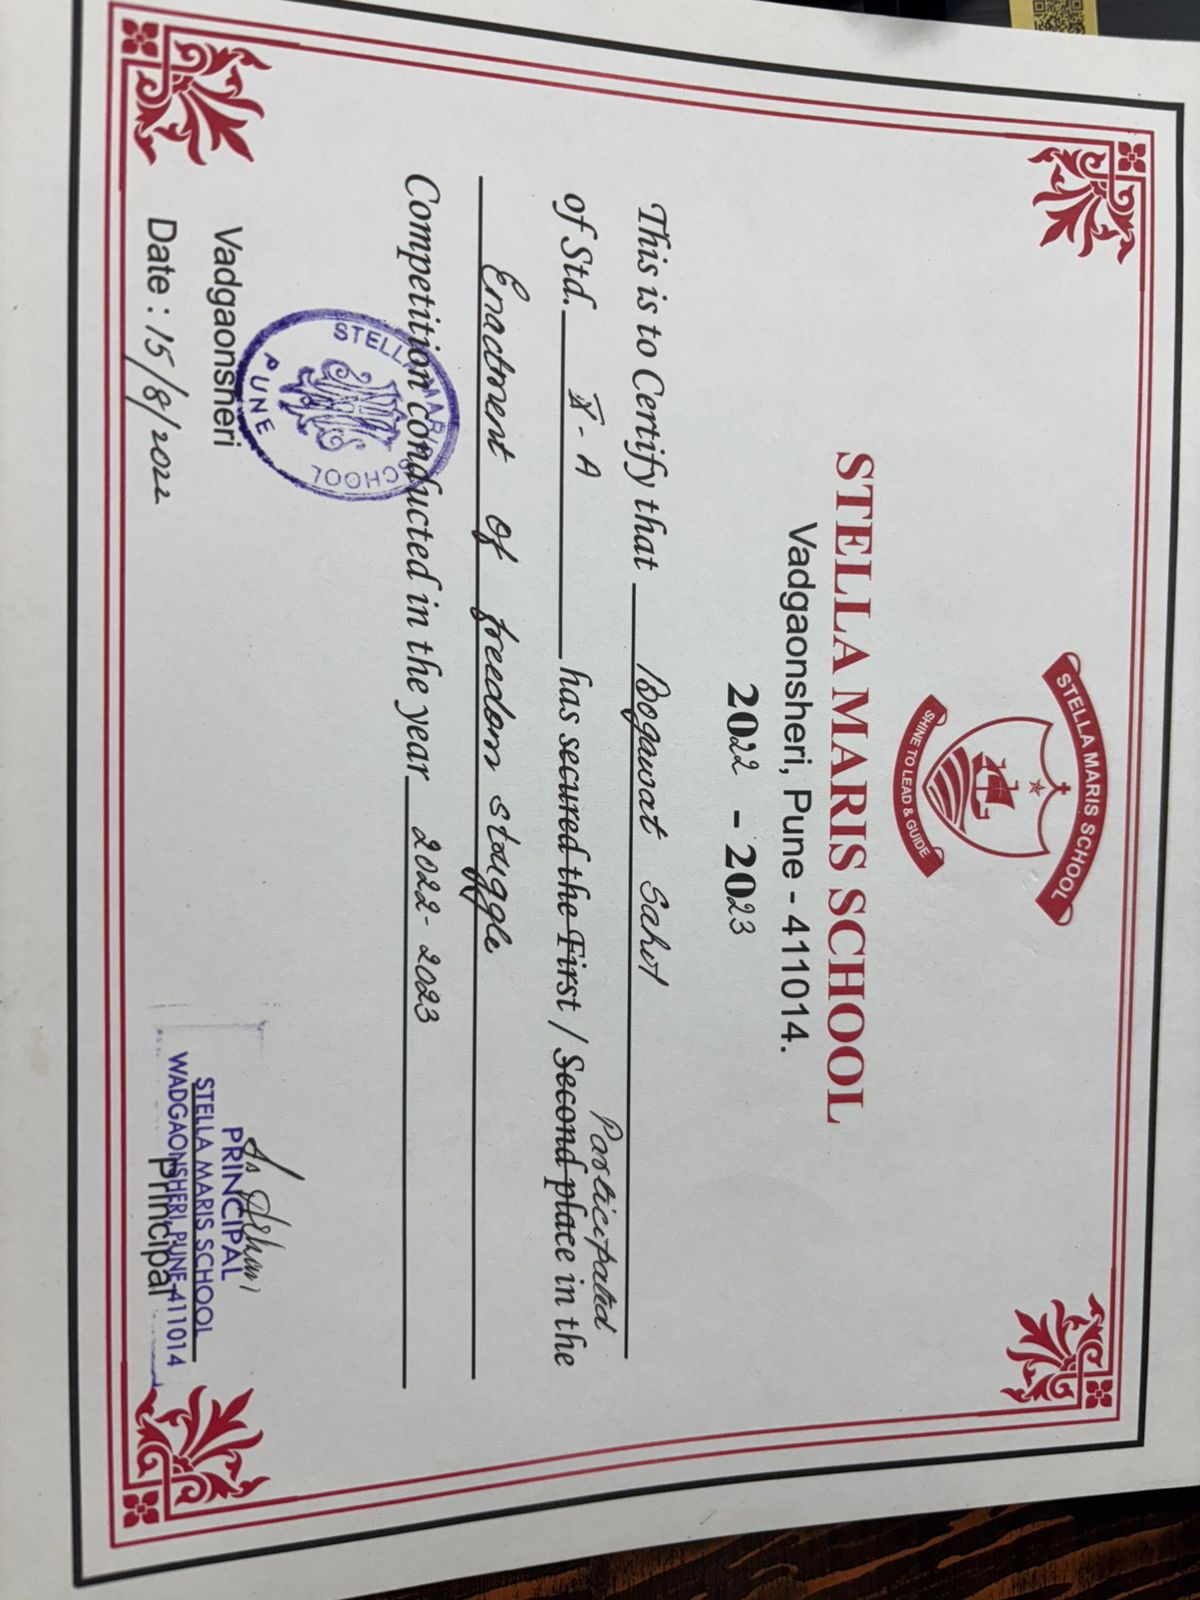 STELLA MARIS SCHOOL
SHINE TO LEAD & GUIDE
STELLA MARIS SCHOOL
Vadgaonsheri, Pune - 411014.
2022 - 2023
This is to Certify that Bogawat Sahil
of Std. X - A has secured the First / Second place in the
Participated
Enactment of freedom struggle
Competition conducted in the year 2022- 2023
STELLA MARIS SCHOOL
PUNE
Vadgaonsheri
Date : 15/8/2022
PRINCIPAL
STELLA MARIS SCHOOL
WADGAONSHERI, PUNE-411014
Principal